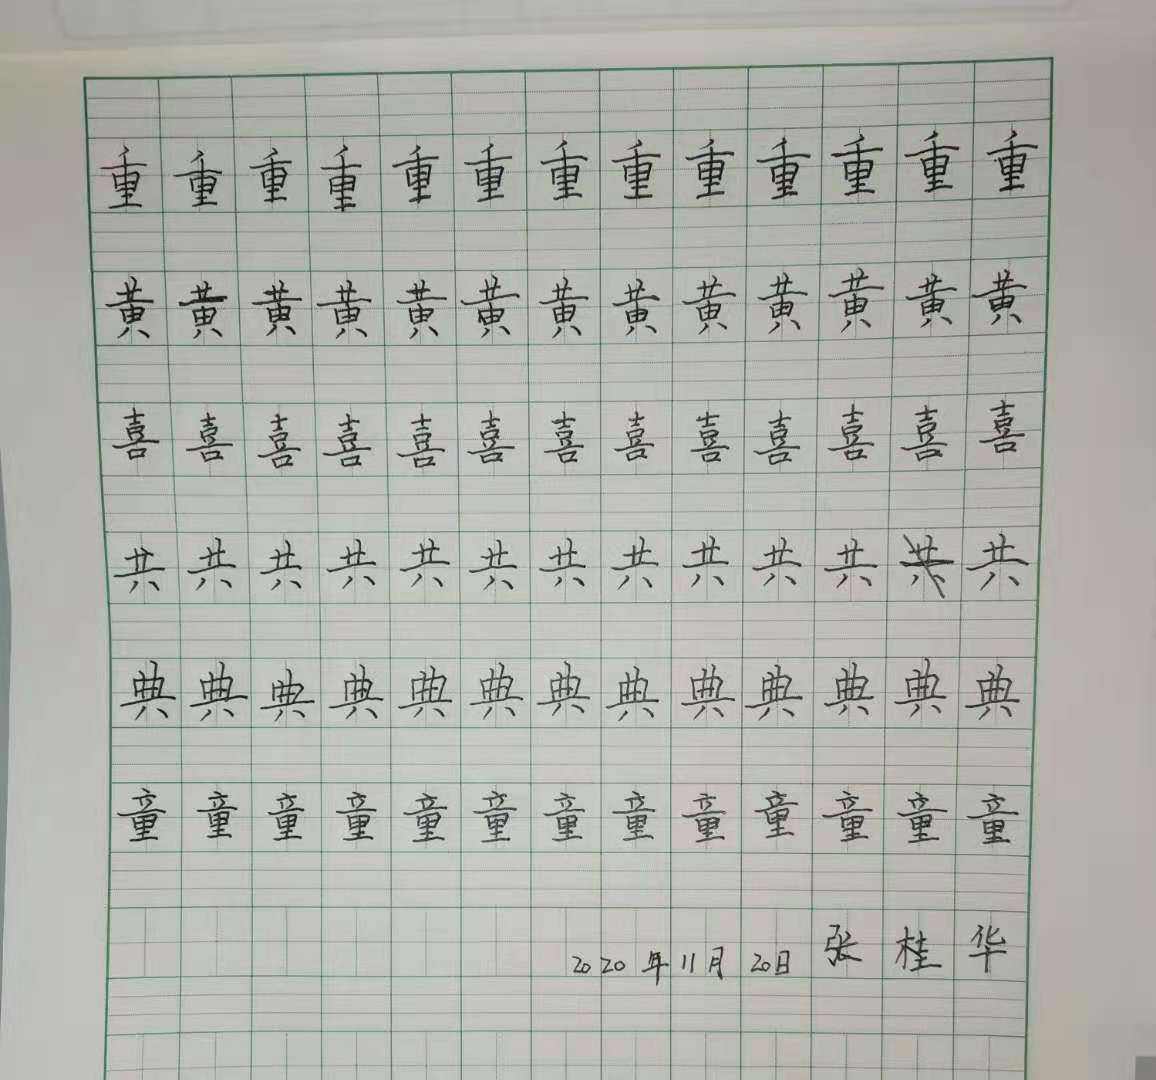 重重重重重重重重重重重重重
黄黄黄黄黄黄黄黄黄黄黄黄黄
喜喜喜喜喜喜喜喜喜喜喜喜喜
共共共共共共共共共共共共共
典典典典典典典典典典典典典
童童童童童童童童童童童童童
2020年11月20日 张桂华